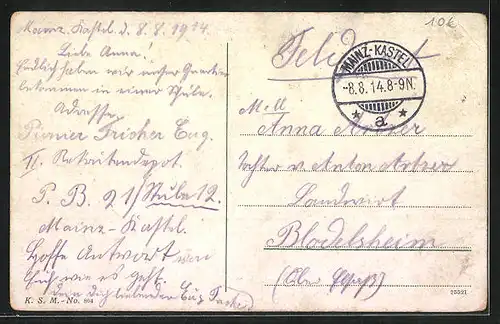 Mainz-Kastel d. 8.8.1914
Liebe Anna!
Endlich haben wir unser Quartier
bekommen in einer Schule.
Adresse
Pionier Fischer Eug.
II. Rekrutendepot.
P. B. 21/Stube 12.
Mainz-Kastel.
Hoffe Antwort von
Euch wie es geht.
dein dich liebender Eug Fischer
K. S. M.-No. 664
10€
Feldpost
MAINZ-KASTEL
-8.8.14.8-9N.
* a *
Mll
Anna Artzer
Tochter v Anton Artzer
Landwirt
Blodelsheim
(Ober Elsaß)